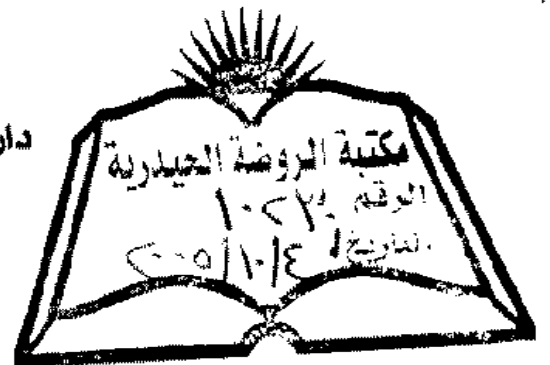 دار
مكتبة الروضة الحيدرية
الرقم
التاريخ ٢٠٠٥/١٠/٤